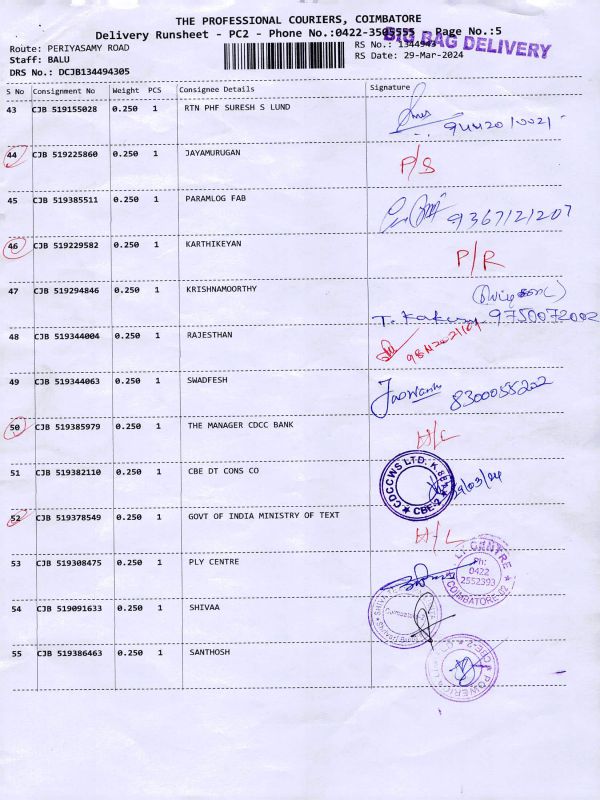 THE PROFESSIONAL COURIERS, COIMBATORE
Delivery Runsheet - PC2 - Phone No.:0422-3505555 Page No.:5
BIG BAG DELIVERY
Route: PERIYASAMY ROAD RS No.: 1344943
Staff: BALU RS Date: 29-Mar-2024
DRS No.: DCJB134494305
S No Consignment No Weight PCS Consignee Details Signature
43 CJB 519155028 0.250 1 RTN PHF SURESH S LUND
44 CJB 519225860 0.250 1 JAYAMURUGAN P/S
45 CJB 519385511 0.250 1 PARAMLOG FAB 9367121207
46 CJB 519229582 0.250 1 KARTHIKEYAN P/R
47 CJB 519294846 0.250 1 KRISHNAMOORTHY
9750072002
48 CJB 519344004 0.250 1 RAJESTHAN
49 CJB 519344063 0.250 1 SWADFESH 8300055202
50 CJB 519385979 0.250 1 THE MANAGER CDCC BANK H/L
51 CJB 519382110 0.250 1 CBE DT CONS CO CDCCWS LTD. CBE-2 29/03/24
52 CJB 519378549 0.250 1 GOVT OF INDIA MINISTRY OF TEXT H/L
53 CJB 519308475 0.250 1 PLY CENTRE
CENTRE
Ph:
0422
2552393
COIMBATORE-02
54 CJB 519091633 0.250 1 SHIVAA
55 CJB 519386463 0.250 1 SANTHOSH CBE-2